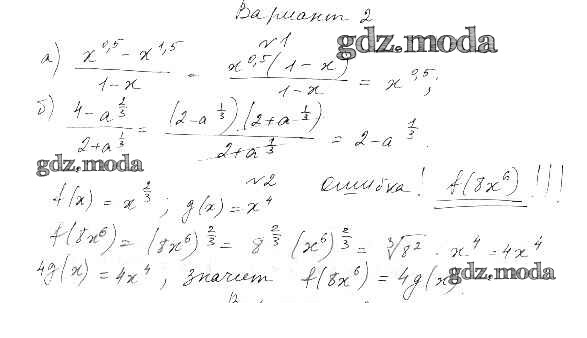 Вариант 2
№1
gdz.moda
а) x^0,5 - x^1,5 / 1-x = x^0,5(1-x) / 1-x = x^0,5;
б) 4-a^2/3 / 2+a^1/3 = (2-a^1/3)(2+a^1/3) / 2+a^1/3 = 2-a^1/3.
gdz.moda
№2 ошибка! f(8x^6)!!!
f(x) = x^2/3; g(x) = x^4
f(8x^6) = (8x^6)^2/3 = 8^2/3 (x^6)^2/3 = ∛8^2 · x^4 = 4x^4
4g(x) = 4x^4, значит f(8x^6) = 4g(x)
gdz.moda